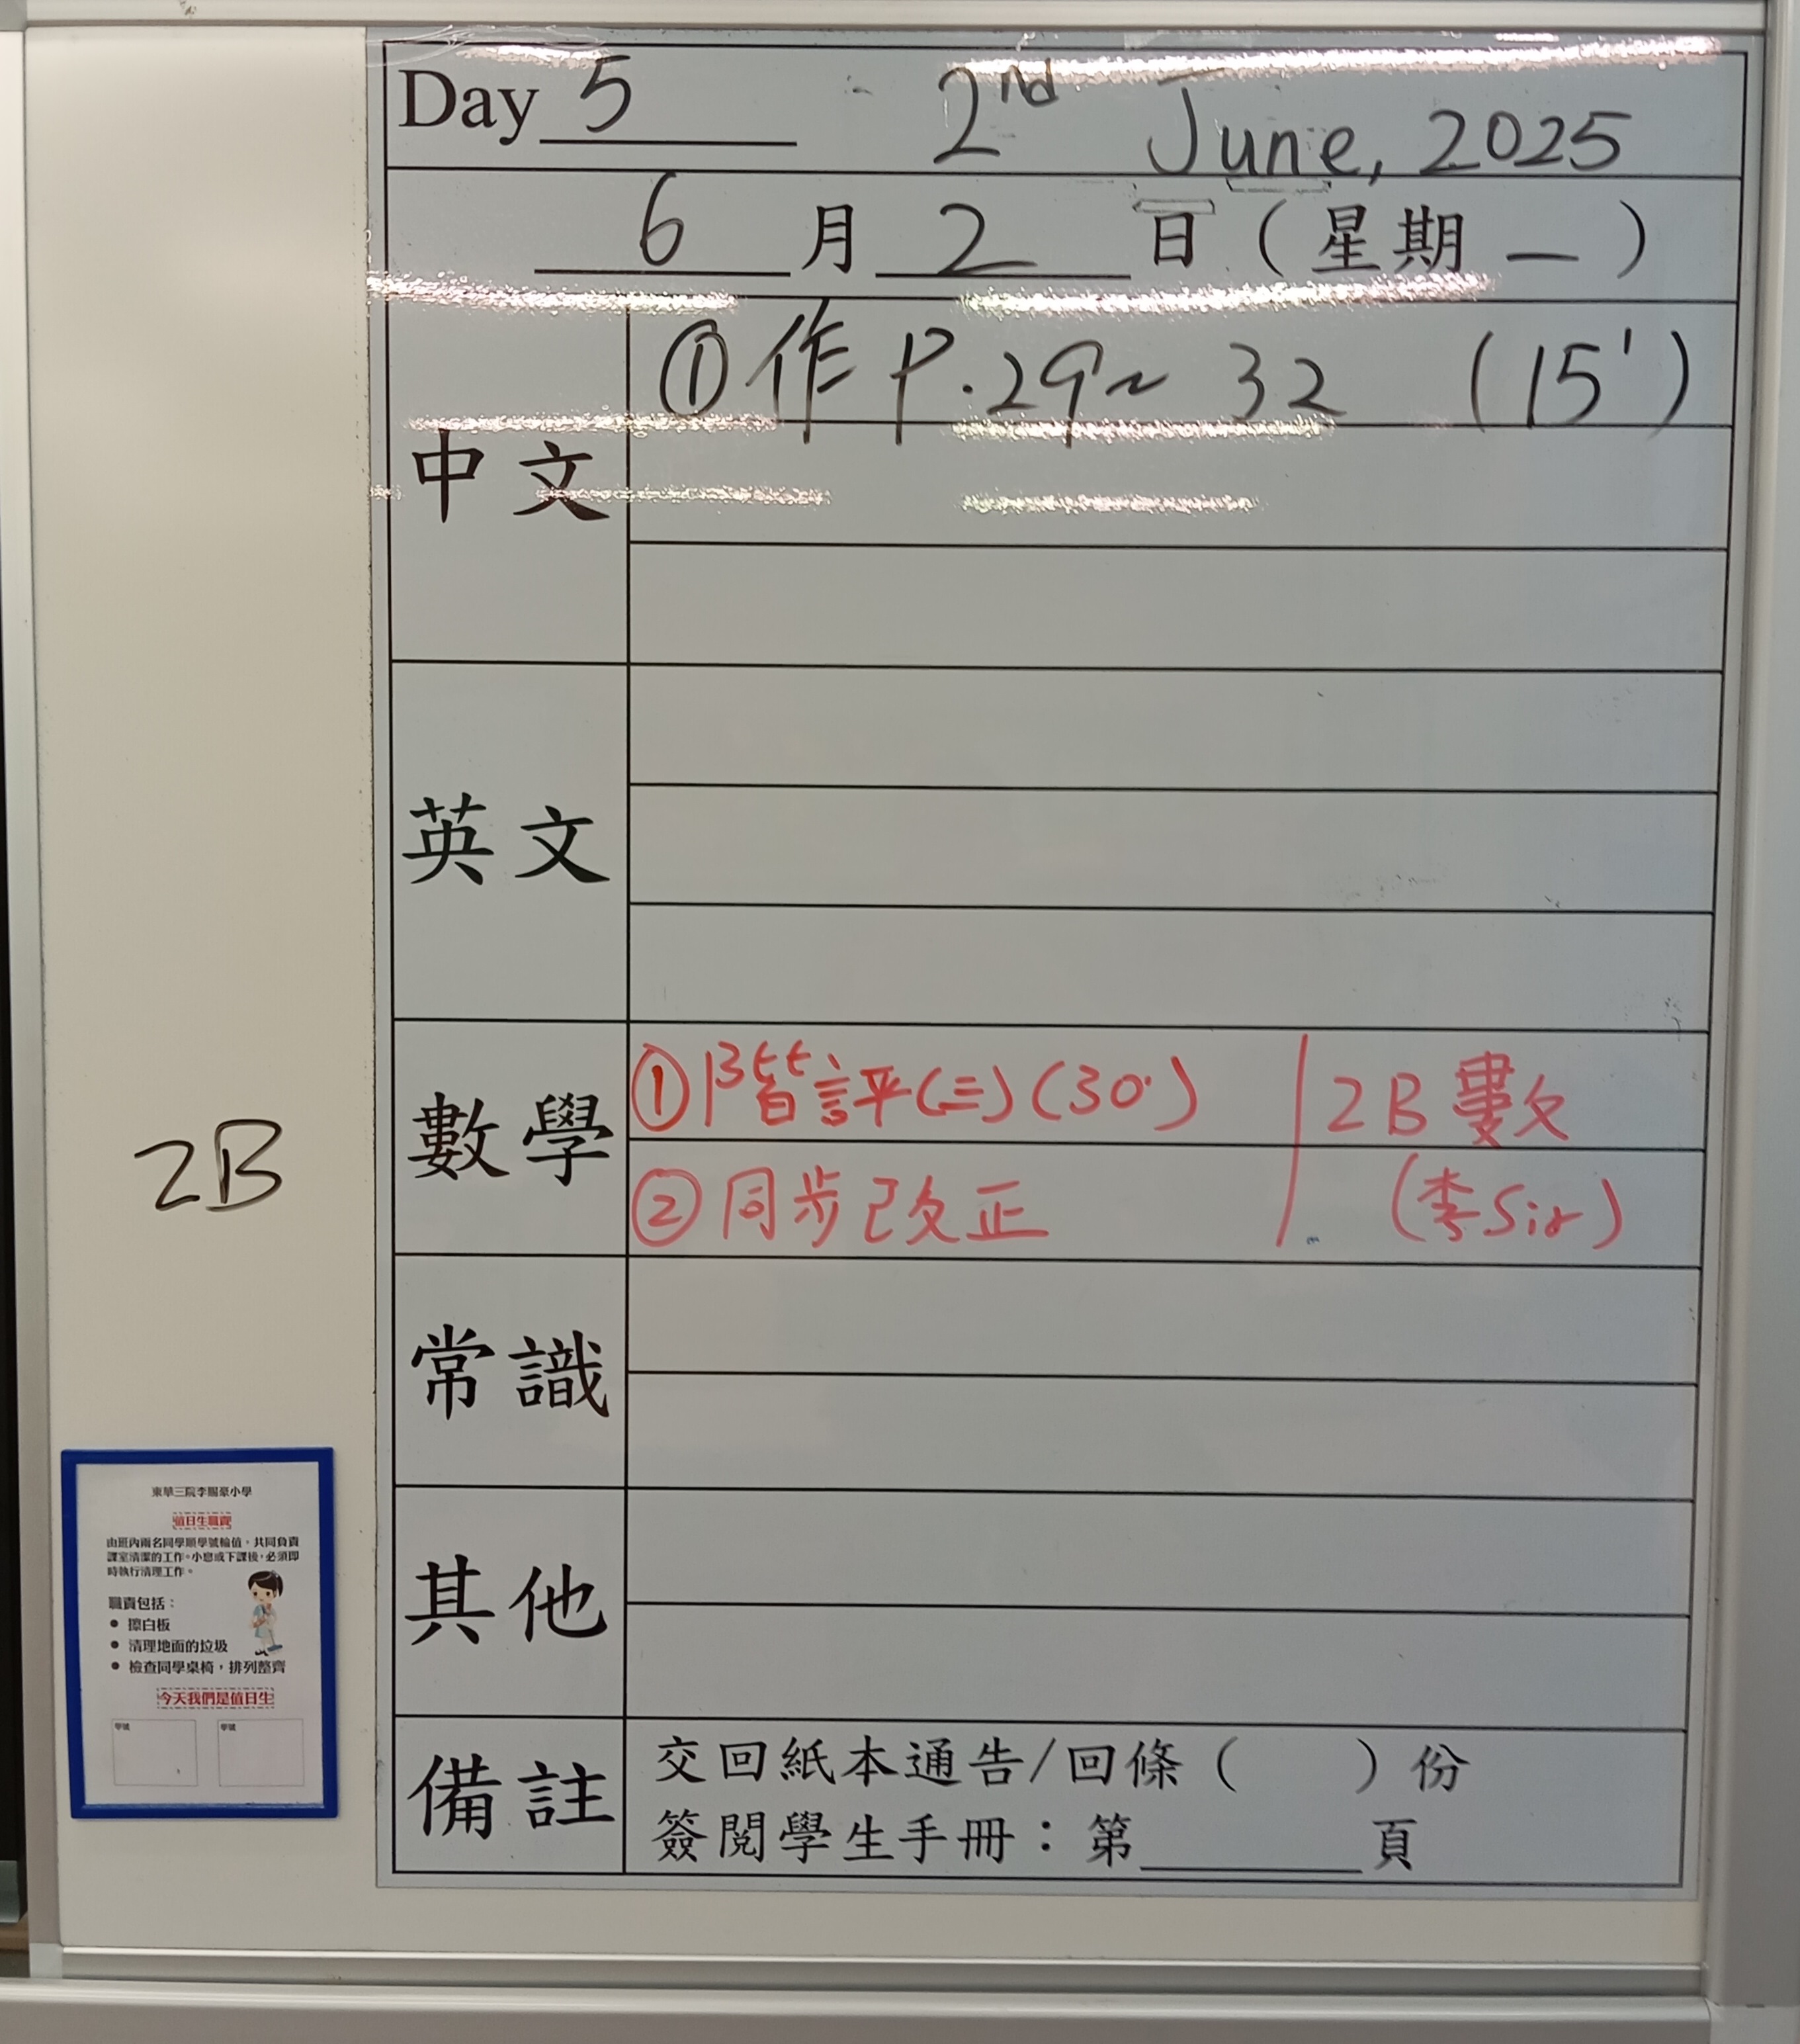 Day 5 2nd June, 2025
6 月 2 日 (星期 一)
中文
①作 P.29~32 (15')
英文
數學
①階評(三)(30') 2B 數
②同步改正 (李Sir)
常識
其他
備註
交回紙本通告/回條( )份
簽閱學生手冊：第______頁
2B
東華三院李賜豪小學
值日生職責
由班內兩名同學順學號輪值，共同負責
課室清潔的工作。小息或下課後，必須即
時執行清理工作。
職責包括：
● 擦白板
● 清理地面的垃圾
● 檢查同學桌椅，排列整齊
今天我們是值日生
學號 學號